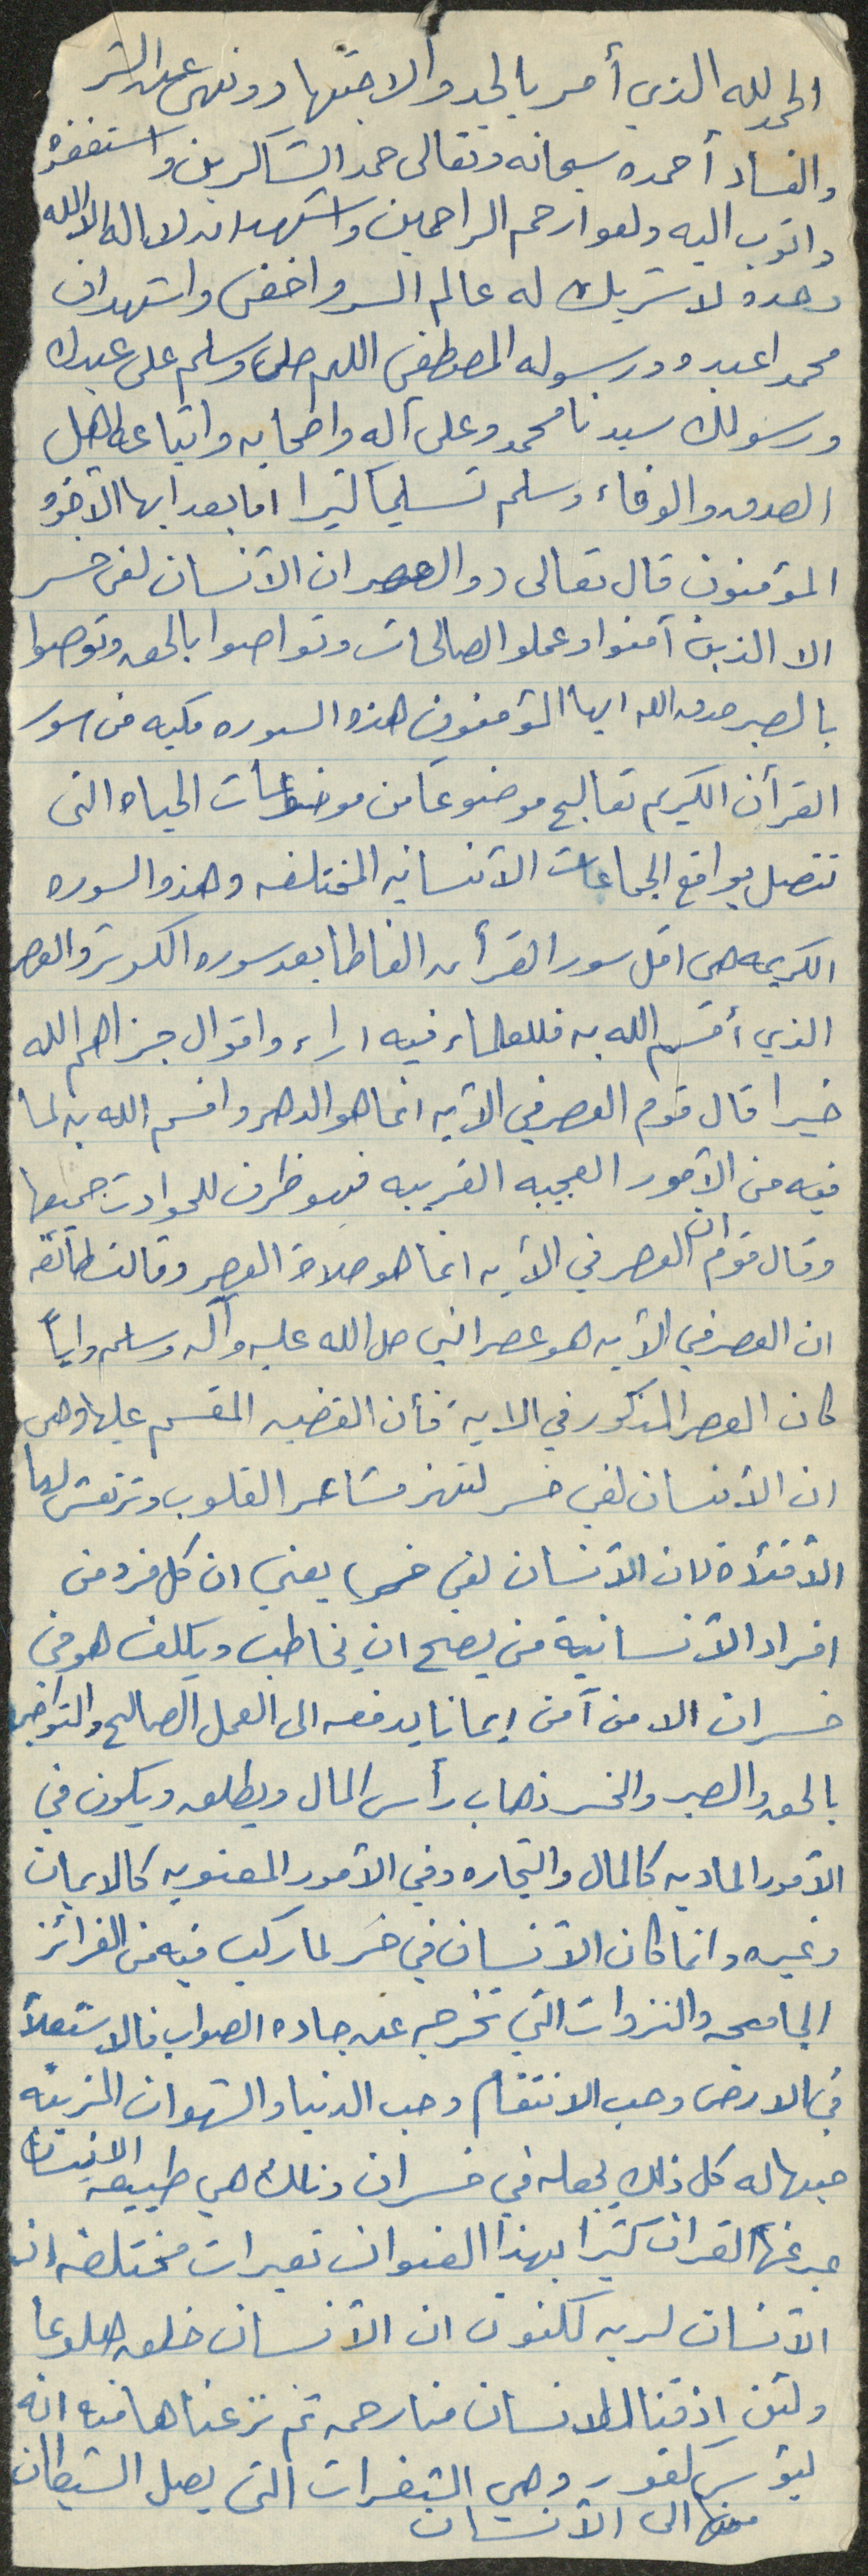 الحمد لله الذي أمر بالجد والاجتهاد ونهى عن الشر
والفساد أحمده سبحانه وتعالى حمد الشاكرين واستغفره
واتوب اليه وهو ارحم الراحمين واشهد ان لا اله الا الله
وحده لا شريك له عالم السر واخفى واشهد ان
محمدا عبده ورسوله المصطفى اللهم صلى وسلم على عبدك
ورسولك سيدنا محمد وعلى آله واصحابه واتباعه اهل
الصدق والوفاء وسلم تسليما كثيرا اما بعد ايها الأخوه
المؤمنون قال تعالى ((والعصر ان الأنسان لفى خسر
الا الذين آمنوا وعملو الصالحات وتواصوا بالحق وتوصوا
بالصبر صدق الله ايها المؤمنون هذه السوره مكيه من سور
القرآن الكريم تعالج موضوعاً من موضوعات الحياه التى
تتصل بواقع الجماعات الأنسانيه المختلفه وهذه السوره
الكريمه هى اقل سور القرأن الفاظا بعد سوره الكوثر والعصر
الذي أقسم الله به فللعلماء فيه اراء واقوال جزاهم الله
خيرا قال قوم العصر في الآيه انما هو الدهر واقسم الله به لما
فيه من الأمور العجيبه الغريبه فهو ظرف للحوادث جميعها
وقال قوم ان العصر في الأيه انما هو صلاة العصر وقالت طائفه
ان العصر في الأيه هو عصر النبي صل الله عليه وآله وسلم واياً
كان العصر المذكور في الايه فأن القضيه المقسم عليها وهى
ان الأنسان لفي خسر لتهز مشاعر القلوب وترتعش لها
الأفئدة لان الأنسان لفي خسر يعني ان كل فرد من
افراد الأنسانية من يصح ان يخاطب ويكلف هو في
خسران الا من آمن إيمانا يدفعه الى العمل الصالح والتواصي
بالحق والصبر والخسر ذهاب رأس المال ويطلق ويكون في
الأمور الماديه كالمال والتجاره وفي الأمور المعنويه كالايمان
وغيره وانما كان الأنسان في خسر لما ركب فيه من الغرائز
الجامحه والنزوات التي تخرجه عن جاده الصواب فالاستعلأ
في الارض وحب الانتقام وحب الدنيا والشهوات المزينه
حبها له كل ذلك يجعله في خسران وتلك هي طبيعه الانسان
عبر عنها القران كثيرا بهذا العنوان تعبيرات مختلفه ان
الأنسان لربه لكنود ان الأنسان خلق هلوعا
ولئن اذقنا الانسان منا رحمه ثم نزعناها منه انه
ليؤس كفور وهى الثغرات التى يصل الشيطان
منها الى الأنسان